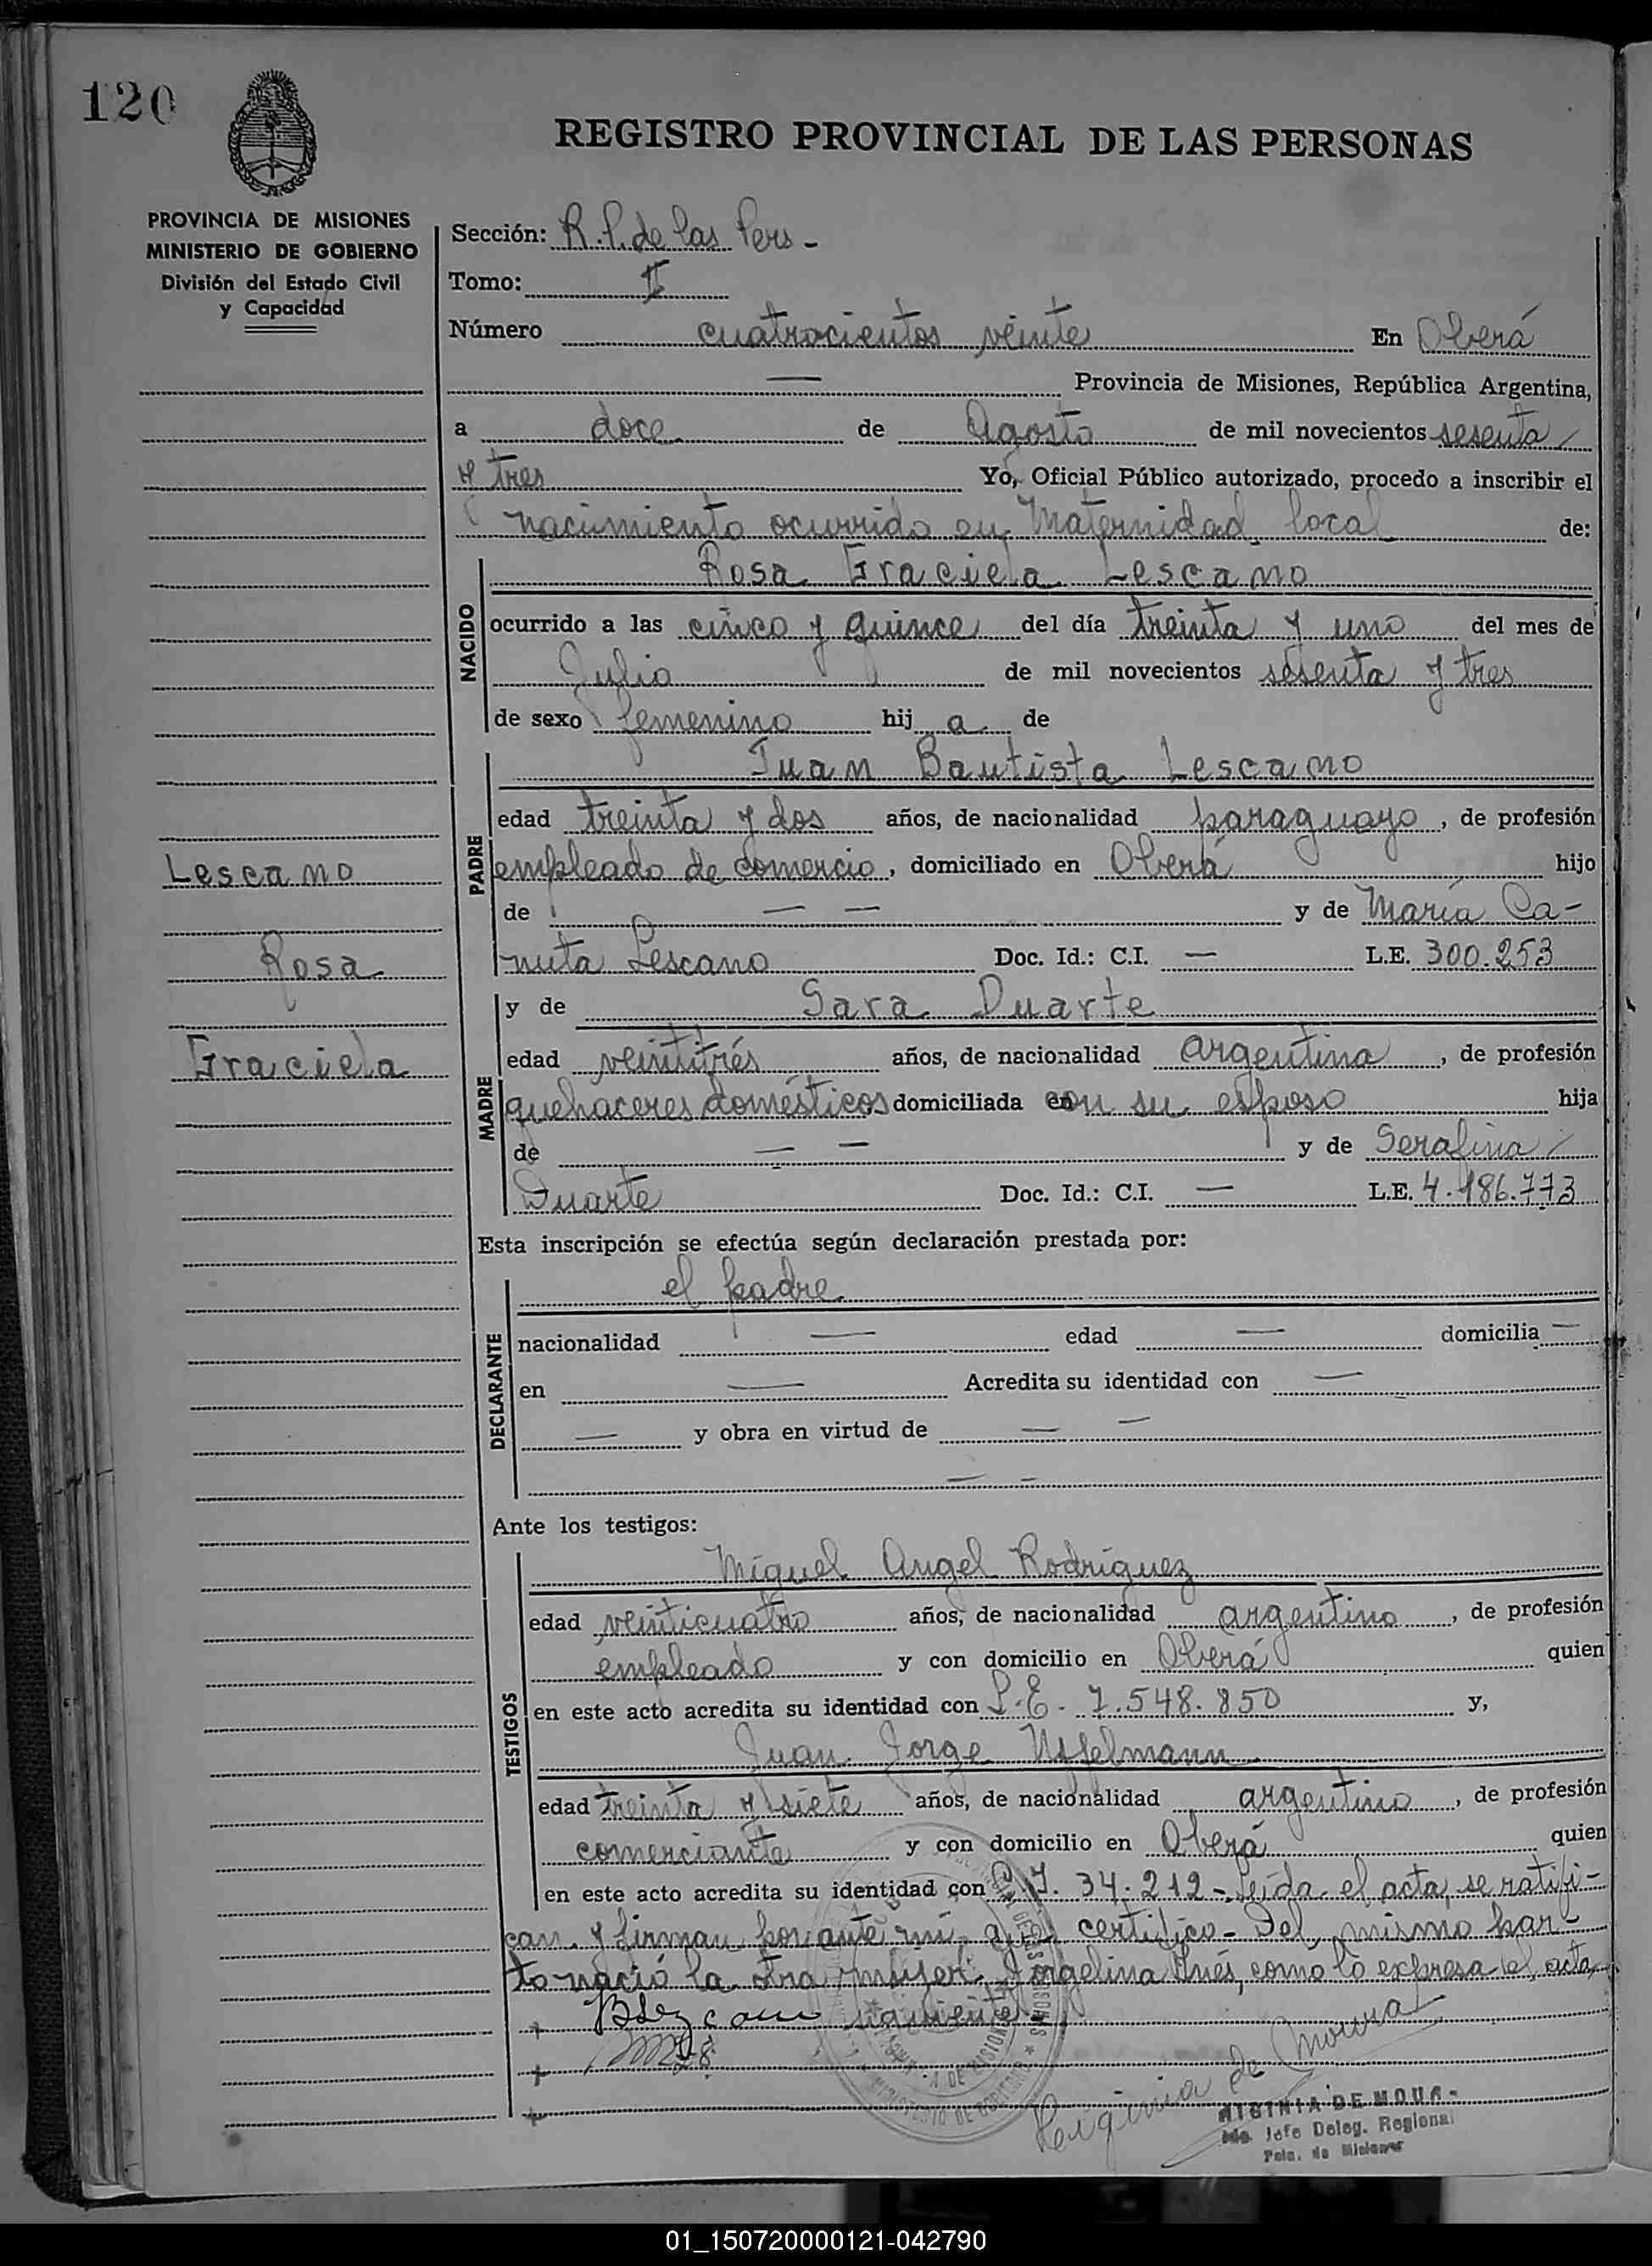 120
REGISTRO PROVINCIAL DE LAS PERSONAS
PROVINCIA DE MISIONES
MINISTERIO DE GOBIERNO
División del Estado Civil
y Capacidad
Sección: R.P. de las Pers -
Tomo: II
Número cuatrocientos veinte En Oberá
— Provincia de Misiones, República Argentina,
a doce de Agosto de mil novecientos sesenta
y tres Yo, Oficial Público autorizado, procedo a inscribir el
nacimiento ocurrido en Maternidad local de:
NACIDO
Rosa Graciela Lescano
ocurrido a las cinco y quince del día treinta y uno del mes de
Julio de mil novecientos sesenta y tres
de sexo femenino hij a de
PADRE
Juan Bautista Lescano
edad treinta y dos años, de nacionalidad paraguayo, de profesión
empleado de comercio, domiciliado en Oberá hijo
de — — y de María Ca-
nuta Lescano Doc. Id.: C.I. — L.E. 300.253
Lescano
Rosa
Graciela
MADRE
y de Sara Duarte
edad veintitrés años, de nacionalidad argentina, de profesión
quehaceres domésticos domiciliada con su esposo hija
de — — y de Serafina
Duarte Doc. Id.: C.I. — L.E. 4.186.773
Esta inscripción se efectúa según declaración prestada por:
DECLARANTE
el padre
nacionalidad — edad — domicilia —
en — Acredita su identidad con —
— y obra en virtud de — —
— —
Ante los testigos:
TESTIGOS
Miguel Angel Rodríguez
edad veinticuatro años, de nacionalidad argentino, de profesión
empleado y con domicilio en Oberá quien
en este acto acredita su identidad con L.E. 7.548.850 y,
Juan Jorge
edad treinta y siete años, de nacionalidad argentino, de profesión
comerciante y con domicilio en Oberá quien
en este acto acredita su identidad con C.I. 34.212 - Leída el acta, se ratifi-
can y firman por ante mí, que certifico - Del mismo par-
to nació la otra mujer: Jorgelina Inés, como lo expresa el acta
siguiente
Higinia de Moura
HIGINIA DE MOURA
Jefe Deleg. Regional
Pcia. de Misiones
01_150720000121-042790